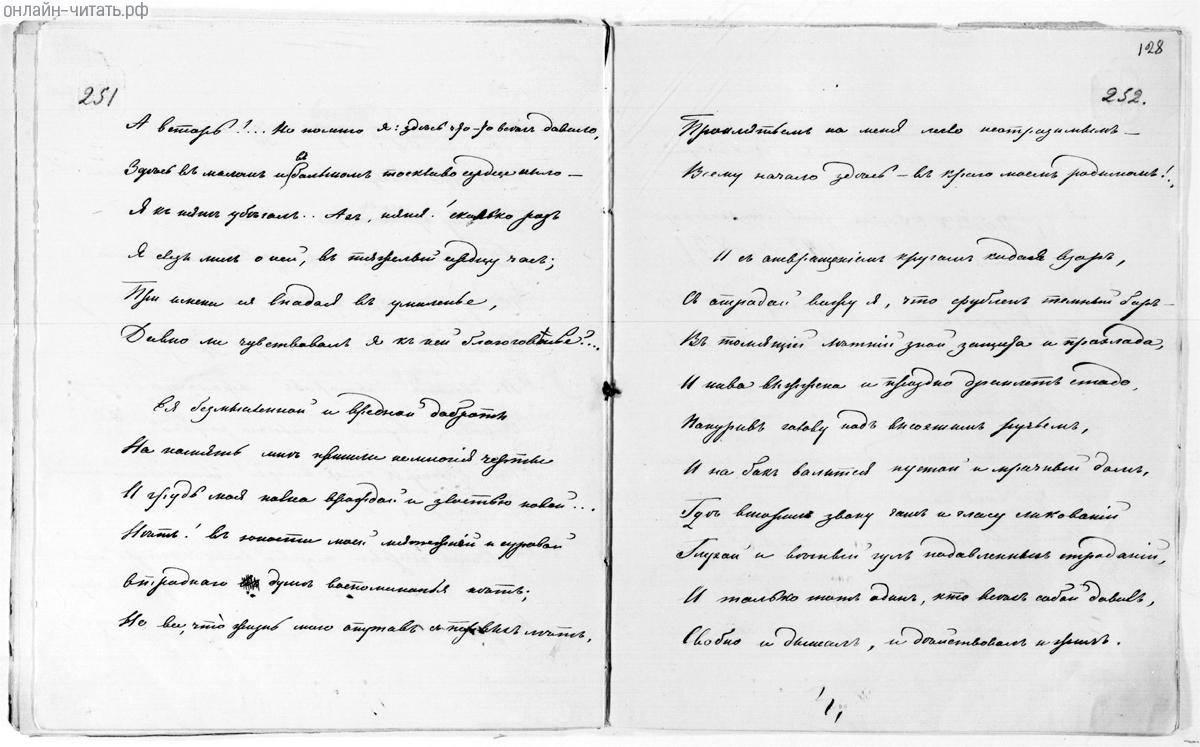 онлайн-читать.рф
251
А встарь?... Но помню я: здѣсь что-то всѣхъ давило,
Здѣсь въ маломъ и въ большомъ тоскливо сердце ныло —
Я къ нянѣ убѣгалъ.. Ахъ, няня! сколько разъ
Я слезъ лилъ о ней, въ тяжелый сердцу часъ;
При имени ея впадая въ умиленье,
Давно ли чувствовалъ я къ ней благоговѣнье?...
Ея безмысленной и вредной доброты
На память мнѣ пришли немногія черты
И грудь моя полна враждой и злостью новой...
Нѣтъ! въ юности моей мятежной и суровой
Отраднаго душѣ воспоминанья нѣтъ;
Но все, что жизнь мою опутавъ съ первыхъ лѣтъ,
128
252.
Проклятьемъ на меня легло неотразимымъ —
Всему начало здѣсь — въ краю моемъ родимомъ!..
И съ отвращеніемъ кругомъ кидая взоръ,
Съ отрадой вижу я, что срубленъ темный боръ —
Въ томящій лѣтній зной защита и прохлада,
И нива выжжена и праздно дремлетъ стадо,
Понуривъ голову надъ высохшимъ ручьемъ,
И на бокъ валится пустой и мрачный домъ,
Гдѣ вторилъ звону чашъ и гласу ликованій
Глухой и вѣчный гулъ подавленныхъ страданій,
И только тотъ одинъ, кто всѣхъ собой давилъ,
Свободно и дышалъ, и дѣйствовалъ и жилъ.